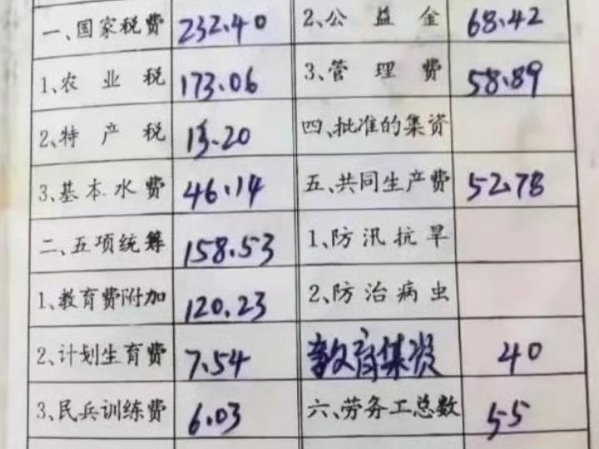 一、国家税费 232.40 2.公益金 68.42
1.农业税 173.06 3.管理费 58.89
2.特产税 13.20 四、批准的集资
3.基本水费 46.14 五、共同生产费 52.78
二、五项统筹 158.53 1.防汛抗旱
1.教育费附加 120.23 2.防治病虫
2.计划生育费 7.54 教育集资 40
3.民兵训练费 6.03 六、劳务工总数 55